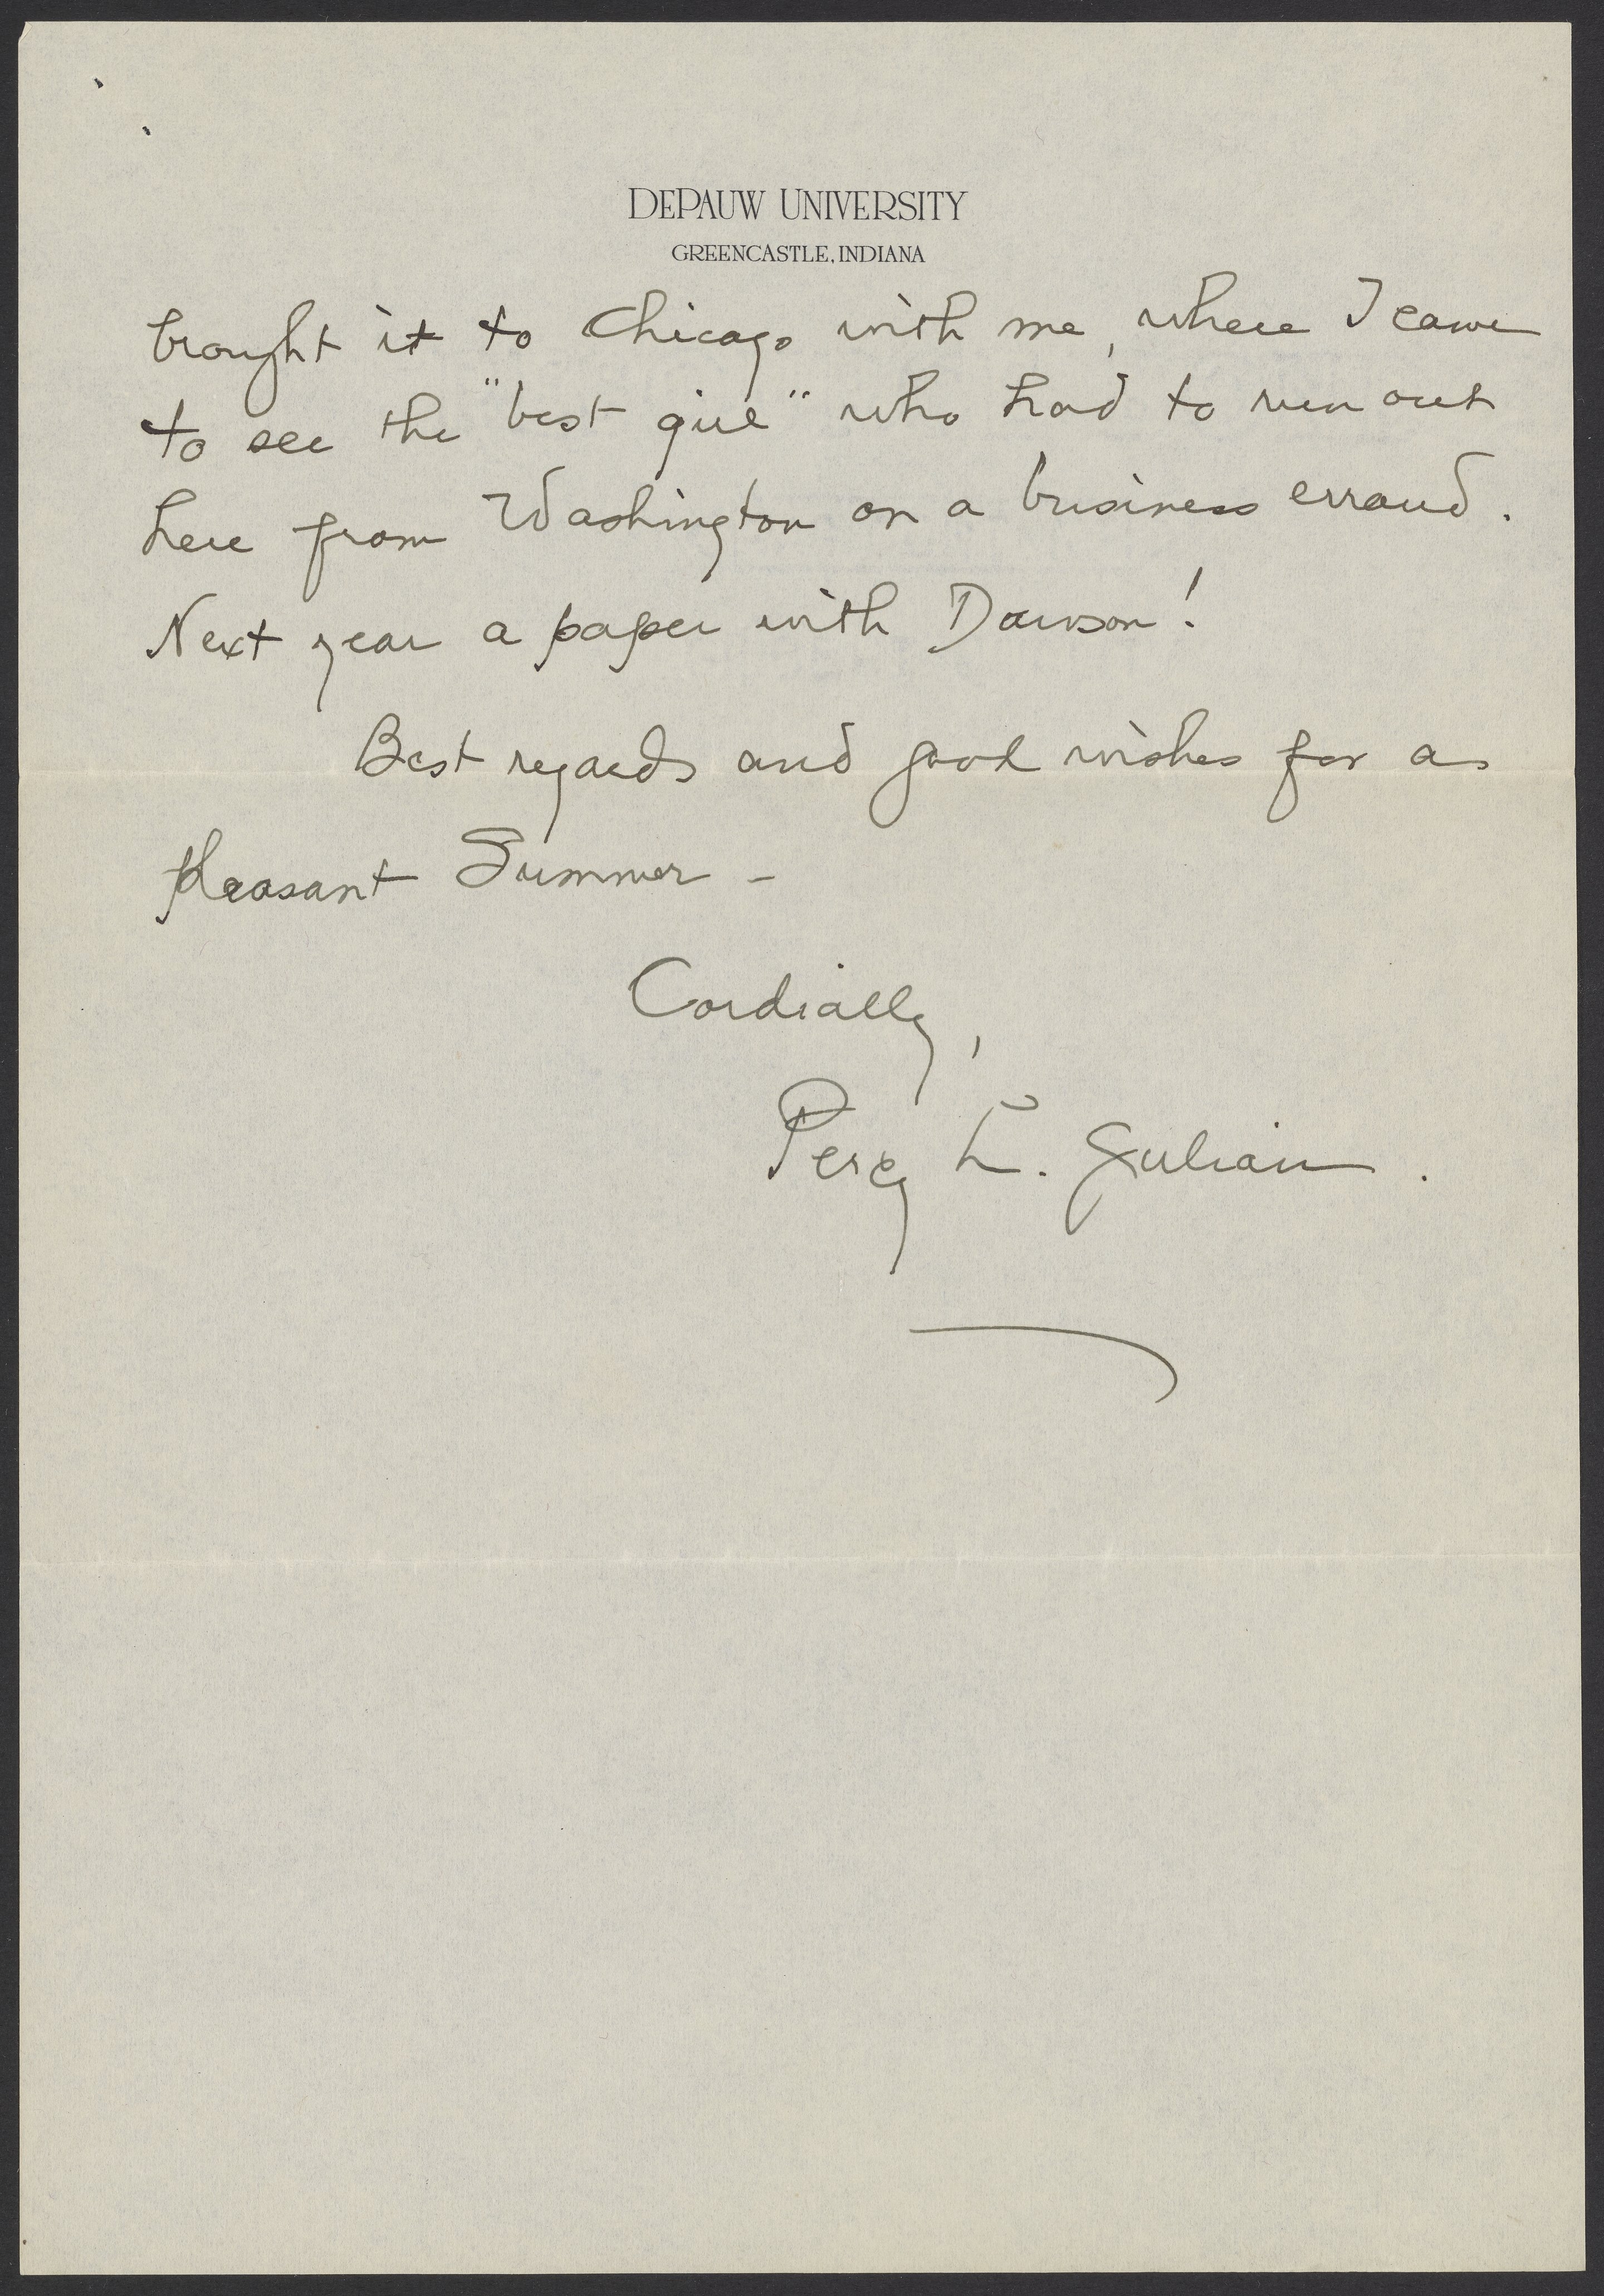 DEPAUW UNIVERSITY
GREENCASTLE, INDIANA
brought it to Chicago with me, where I came
to see the "best girl" who had to run out
here from Washington on a business errand.
Next year a paper with Dawson!
Best regards and good wishes for a
pleasant Summer -
Cordially,
Percy L. Julian.